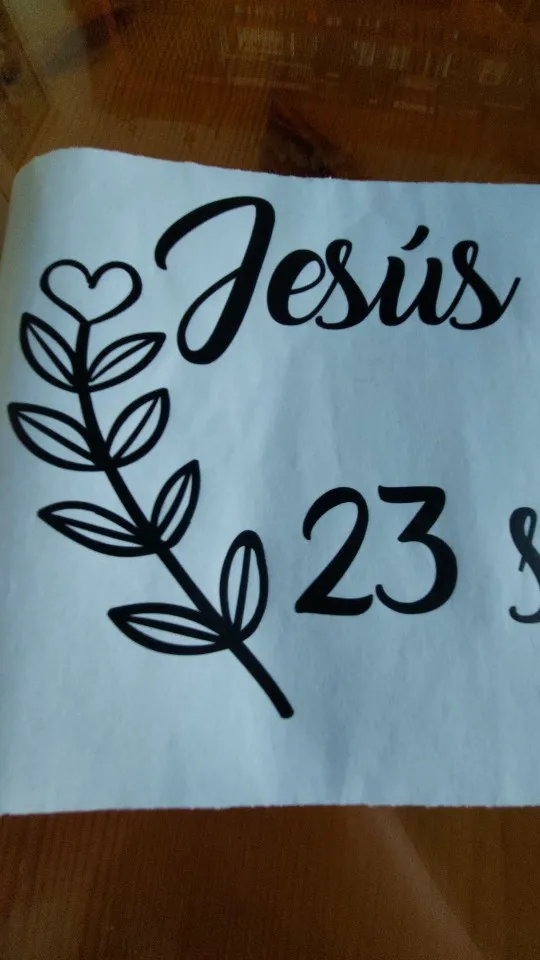 Jesús
23